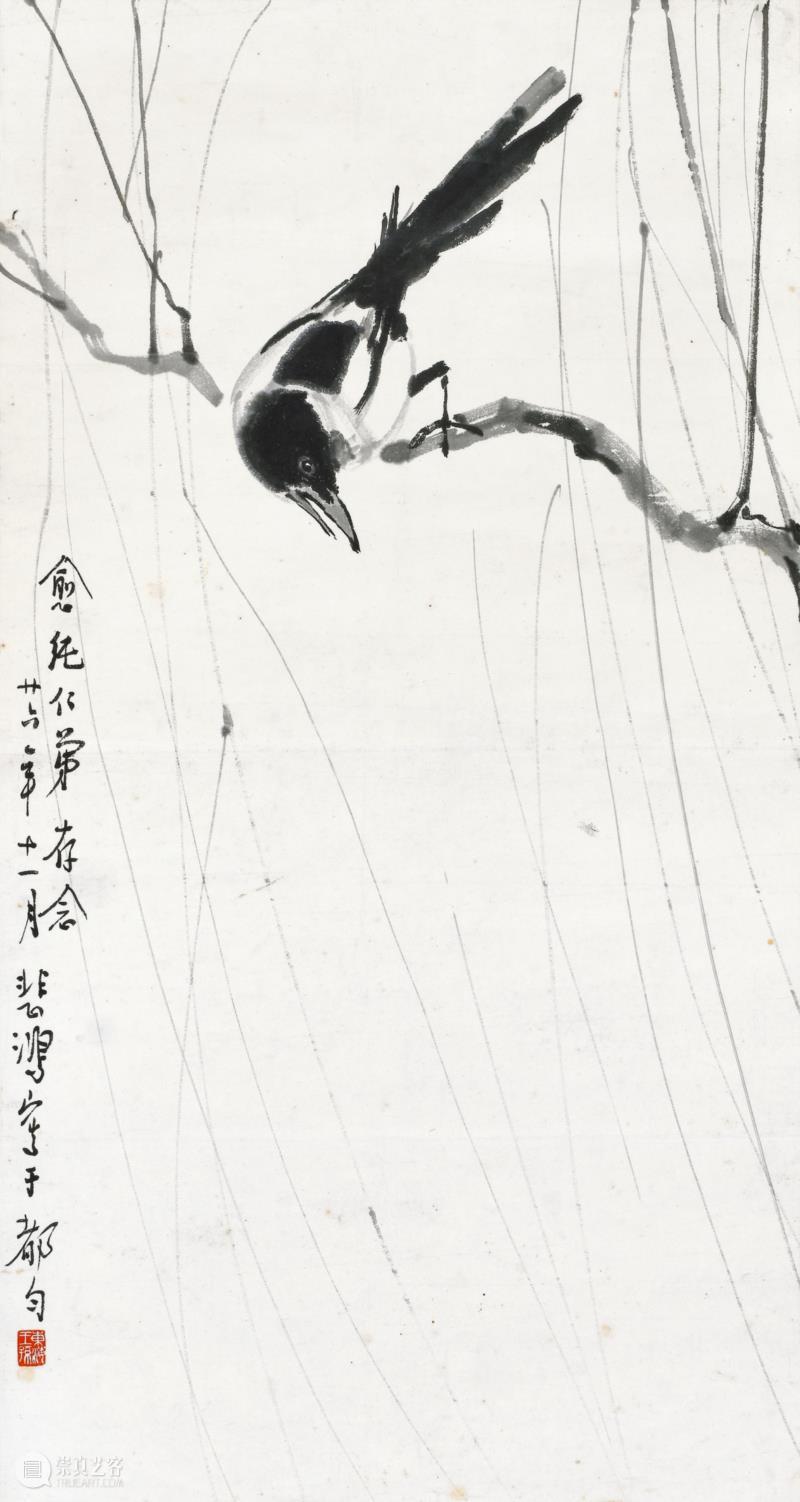 愈純仁弟存念
廿六年十一月 悲鴻寫于都匀
東海王孫
崇真艺客
TRUEART.COM